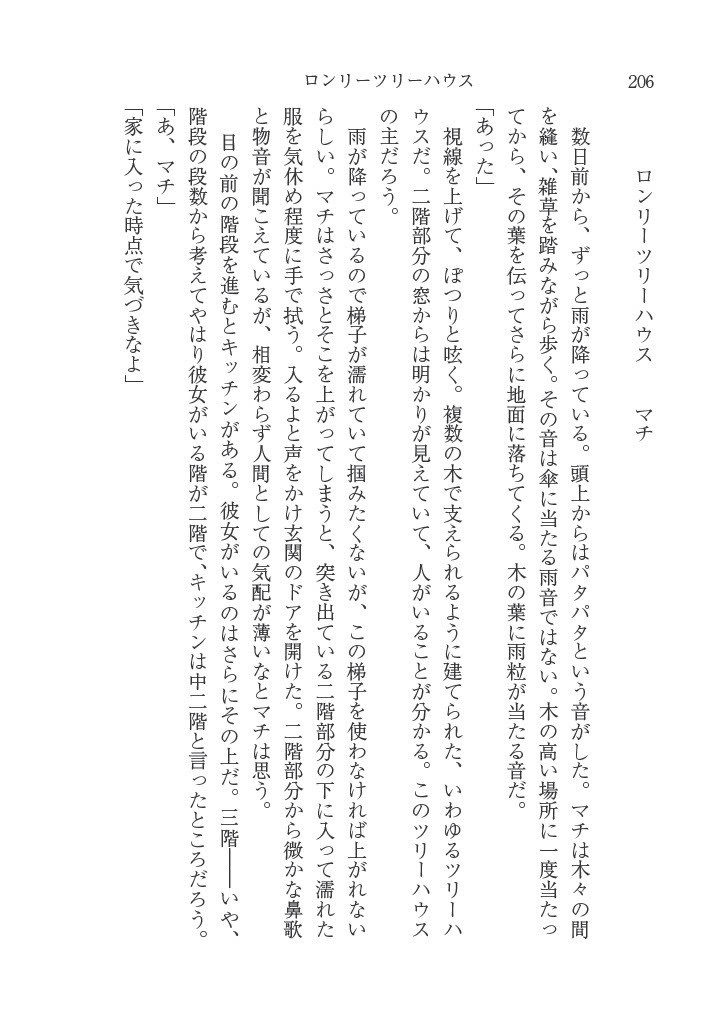 206
ロンリーツリーハウス
ロンリーツリーハウス　　マチ
　数日前から、ずっと雨が降っている。頭上からはパタパタという音がした。マチは木々の間
を縫い、雑草を踏みながら歩く。その音は傘に当たる雨音ではない。木の高い場所に一度当たっ
てから、その葉を伝ってさらに地面に落ちてくる。木の葉に雨粒が当たる音だ。
「あった」
　視線を上げて、ぽつりと呟く。複数の木で支えられるように建てられた、いわゆるツリーハ
ウスだ。二階部分の窓からは明かりが見えていて、人がいることが分かる。このツリーハウス
の主だろう。
　雨が降っているので梯子が濡れていて掴みたくないが、この梯子を使わなければ上がれない
らしい。マチはさっさとそこを上がってしまうと、突き出ている二階部分の下に入って濡れた
服を気休め程度に手で拭う。入るよと声をかけ玄関のドアを開けた。二階部分から微かな鼻歌
と物音が聞こえているが、相変わらず人間としての気配が薄いなとマチは思う。
　目の前の階段を進むとキッチンがある。彼女がいるのはさらにその上だ。三階――いや、
階段の段数から考えてやはり彼女がいる階が二階で、キッチンは中二階と言ったところだろう。
「あ、マチ」
「家に入った時点で気づきなよ」